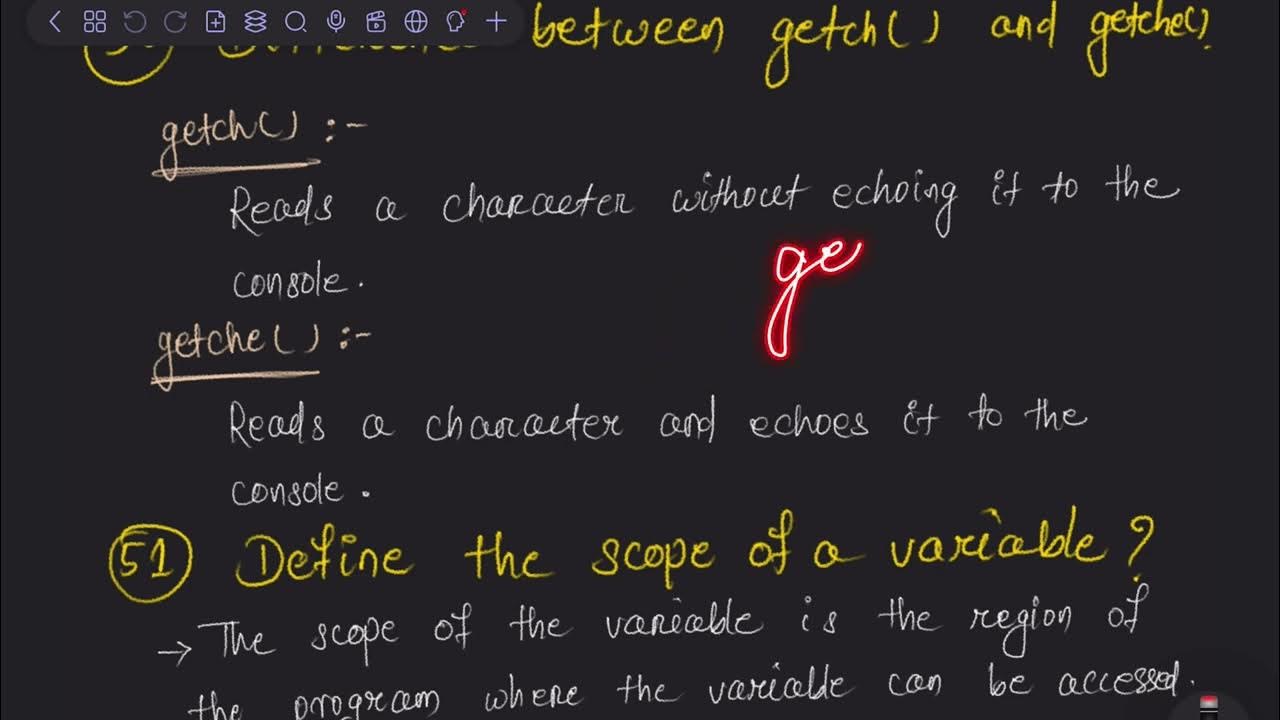 between getch() and getche()?
getch() :-
Reads a character without echoing it to the
ge
console.
getche() :-
Reads a character and echoes it to the
console.
51 Define the scope of a variable?
→ The scope of the variable is the region of
the program where the variable can be accessed.